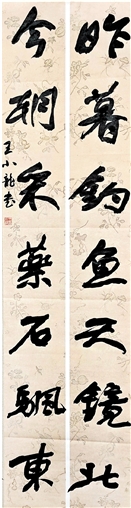 昨暮釣魚天鏡北
今朝采藥石颿東
王小龍書